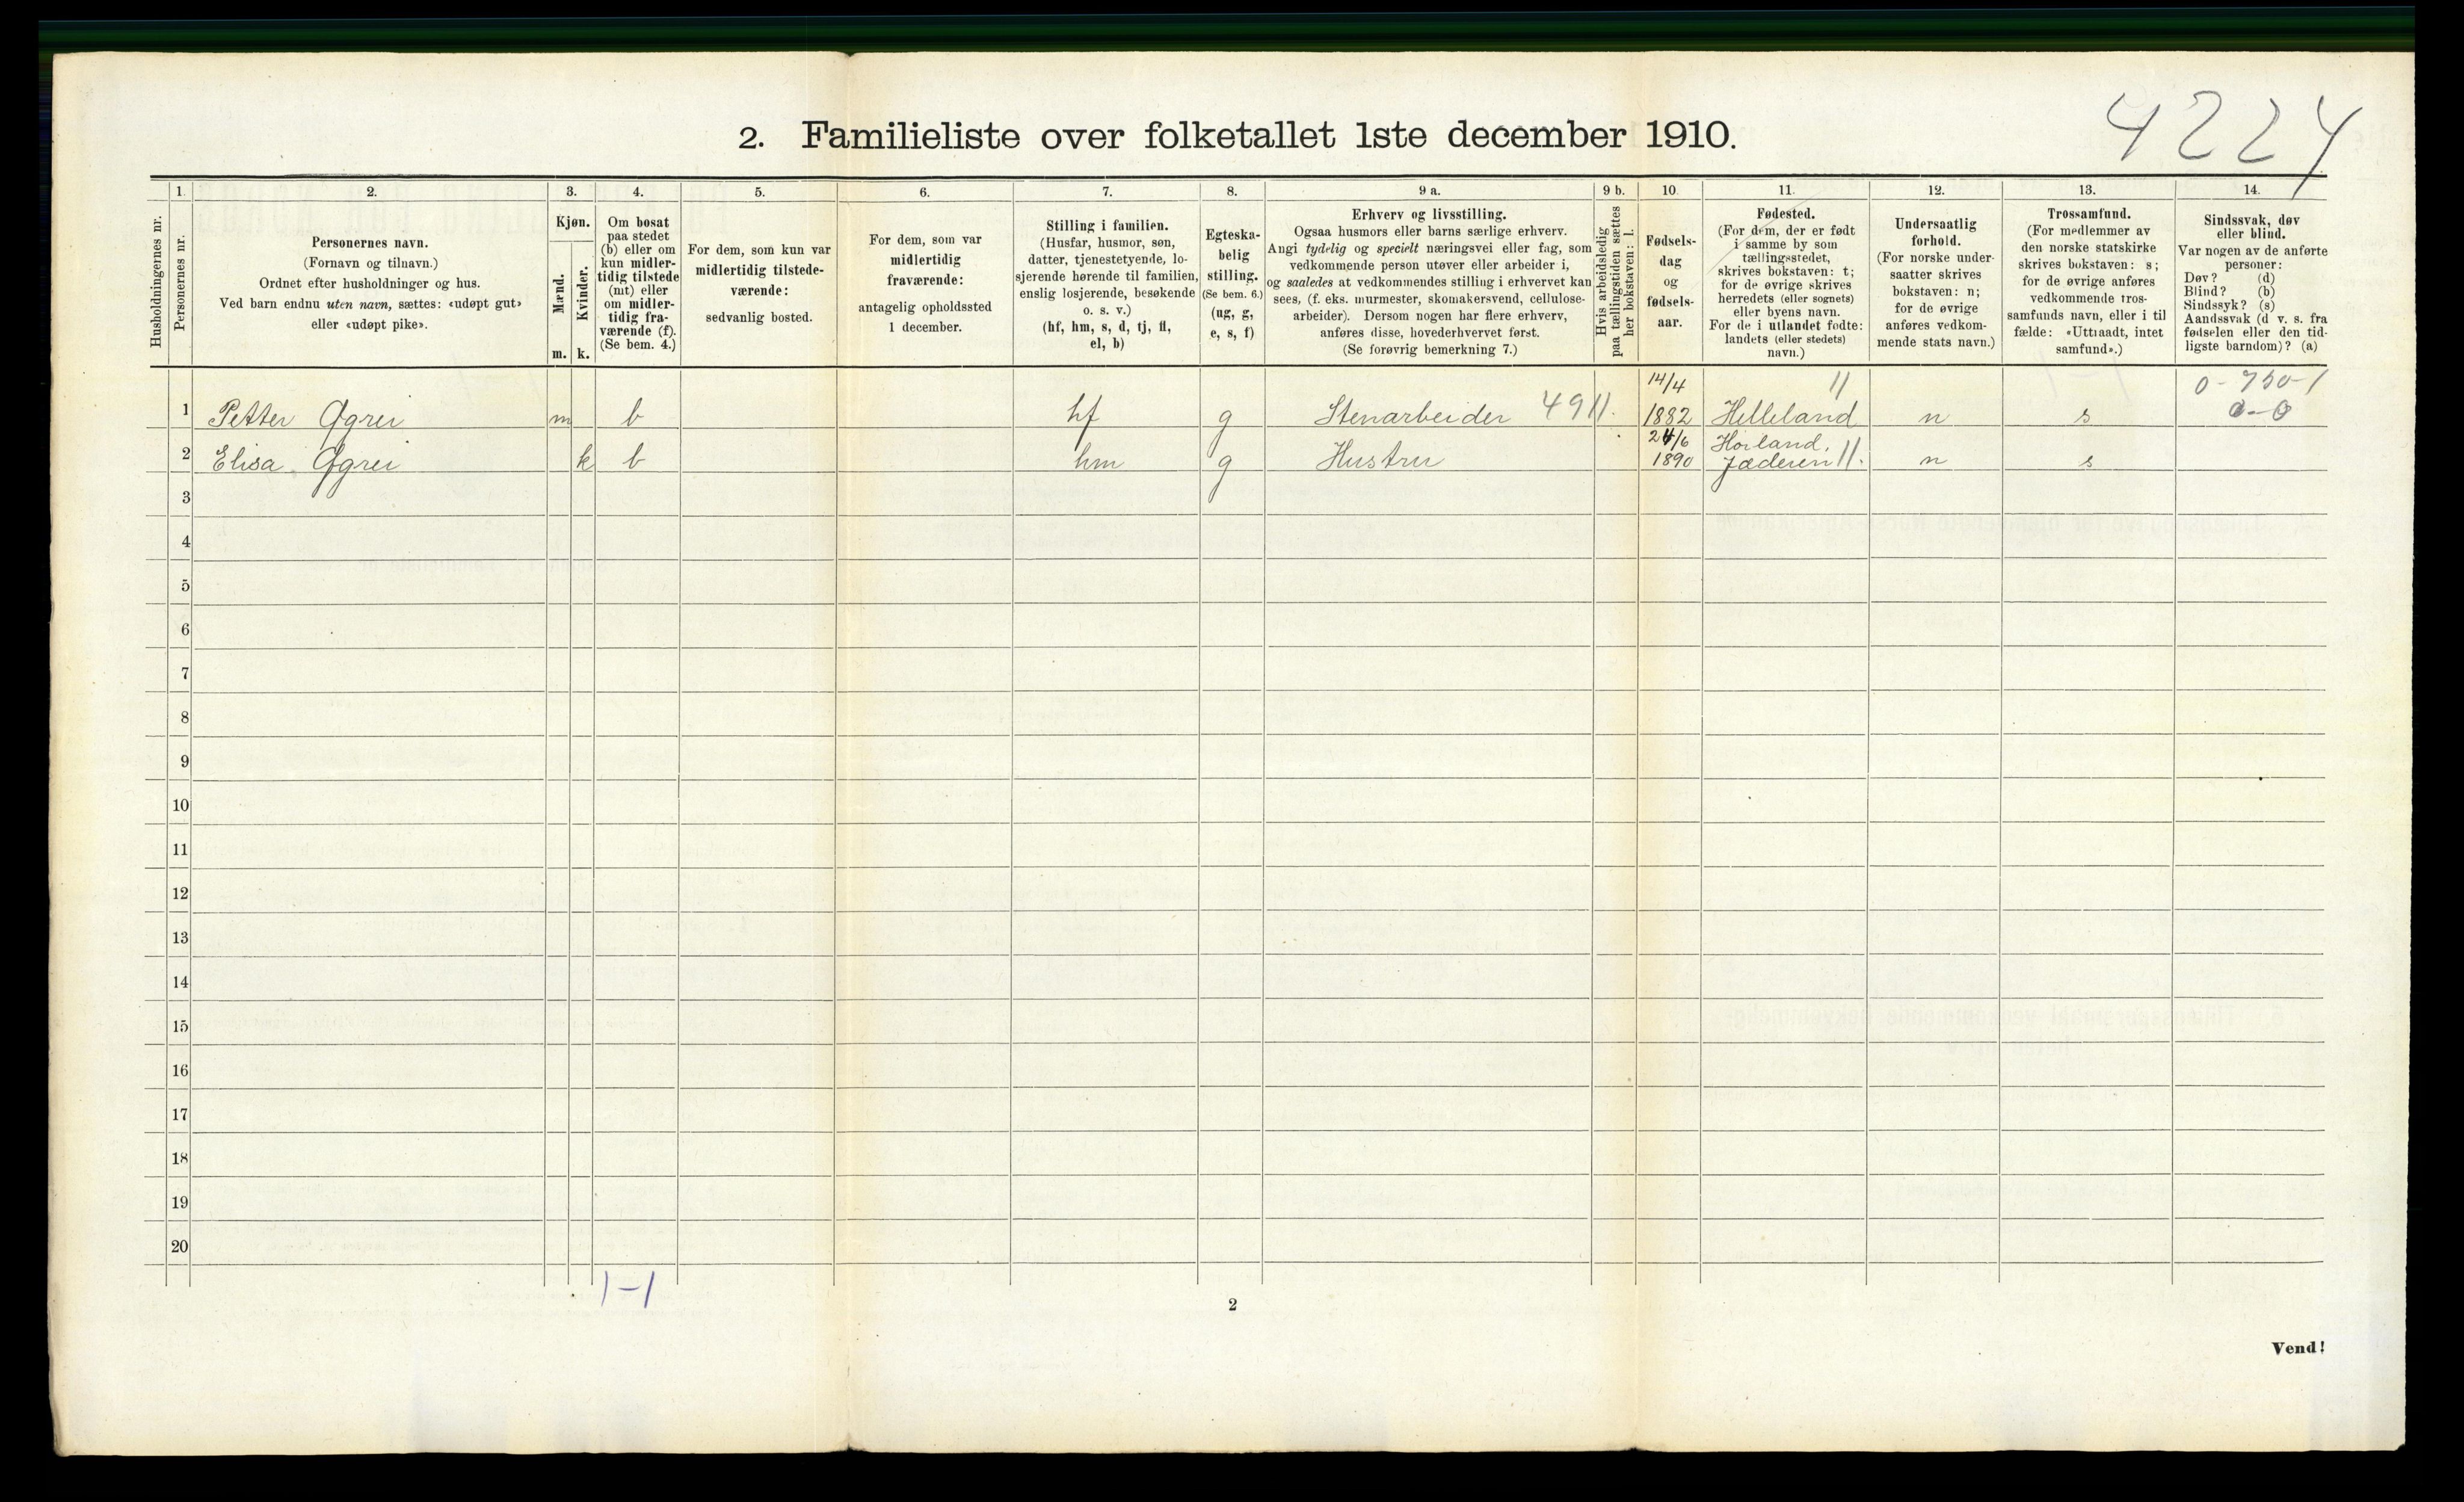 4224
2. Familieliste over folketallet 1ste december 1910.
Husholdningernes nr.
1.
Personernes nr.
2.
Personernes navn.
(Fornavn og tilnavn.)
Ordnet efter husholdninger og hus.
Ved barn endnu uten navn, sættes: «udøpt gut»
eller «udøpt pike».
3.
Kjøn.
Mænd.
Kvinder.
m. k.
4.
Om bosat
paa stedet
(b) eller om
kun midler-
tidig tilstede
(mt) eller
om midler-
tidig fra-
værende (f).
(Se bem. 4.)
5.
For dem, som kun var
midlertidig tilstede-
værende:
sedvanlig bosted.
6.
For dem, som var
midlertidig
fraværende:
antagelig opholdssted
1 december.
7.
Stilling i familien.
(Husfar, husmor, søn,
datter, tjenestetyende, lo-
sjerende hørende til familien,
enslig losjerende, besøkende
o. s. v.)
(hf, hm, s, d, tj, fl,
el, b)
8.
Egteska-
belig
stilling.
(Se bem. 6.)
(ug, g,
e, s, f)
9 a.
Erhverv og livsstilling.
Ogsaa husmors eller barns særlige erhverv.
Angi tydelig og specielt næringsvei eller fag, som
vedkommende person utøver eller arbeider i,
og saaledes at vedkommendes stilling i erhvervet kan
sees, (f. eks. murmester, skomakersvend, cellulose-
arbeider). Dersom nogen har flere erhverv,
anføres disse, hovederhvervet først.
(Se forøvrig bemerkning 7.)
9 b.
Hvis arbeidsledig
paa tællingstiden sættes
her bokstaven: l.
10.
Fødsels-
dag
og
fødsels-
aar.
11.
Fødested.
(For dem, der er født
i samme by som
tællingsstedet,
skrives bokstaven: t;
for de øvrige skrives
herredets (eller sognets)
eller byens navn.
For de i utlandet fødte:
landets (eller stedets)
navn.)
12.
Undersaatlig
forhold.
(For norske under-
saatter skrives
bokstaven: n;
for de øvrige
anføres vedkom-
mende stats navn.)
13.
Trossamfund.
(For medlemmer av
den norske statskirke
skrives bokstaven: s;
for de øvrige anføres
vedkommende tros-
samfunds navn, eller i til
fælde: «Uttraadt, intet
samfund».)
14.
Sindssvak, døv
eller blind.
Var nogen av de anførte
personer:
Døv? (d)
Blind? (b)
Sindssyk? (s)
Aandssvak (d v. s. fra
fødselen eller den tid-
ligste barndom)? (a)
14/4 11 0-750-1
1 Petter Ögrei m b hf g Stenarbeider 4911. 1882 Helleland n s 0-0
24/6 Hoiland,
2 Elisa Ögrei k b hm g Hustru 1890 Jæderen 11. n s
3
4
5
6
7
8
9
10
11
12
13
14
15
16
17
18
19
20
1-1
2
Vend!